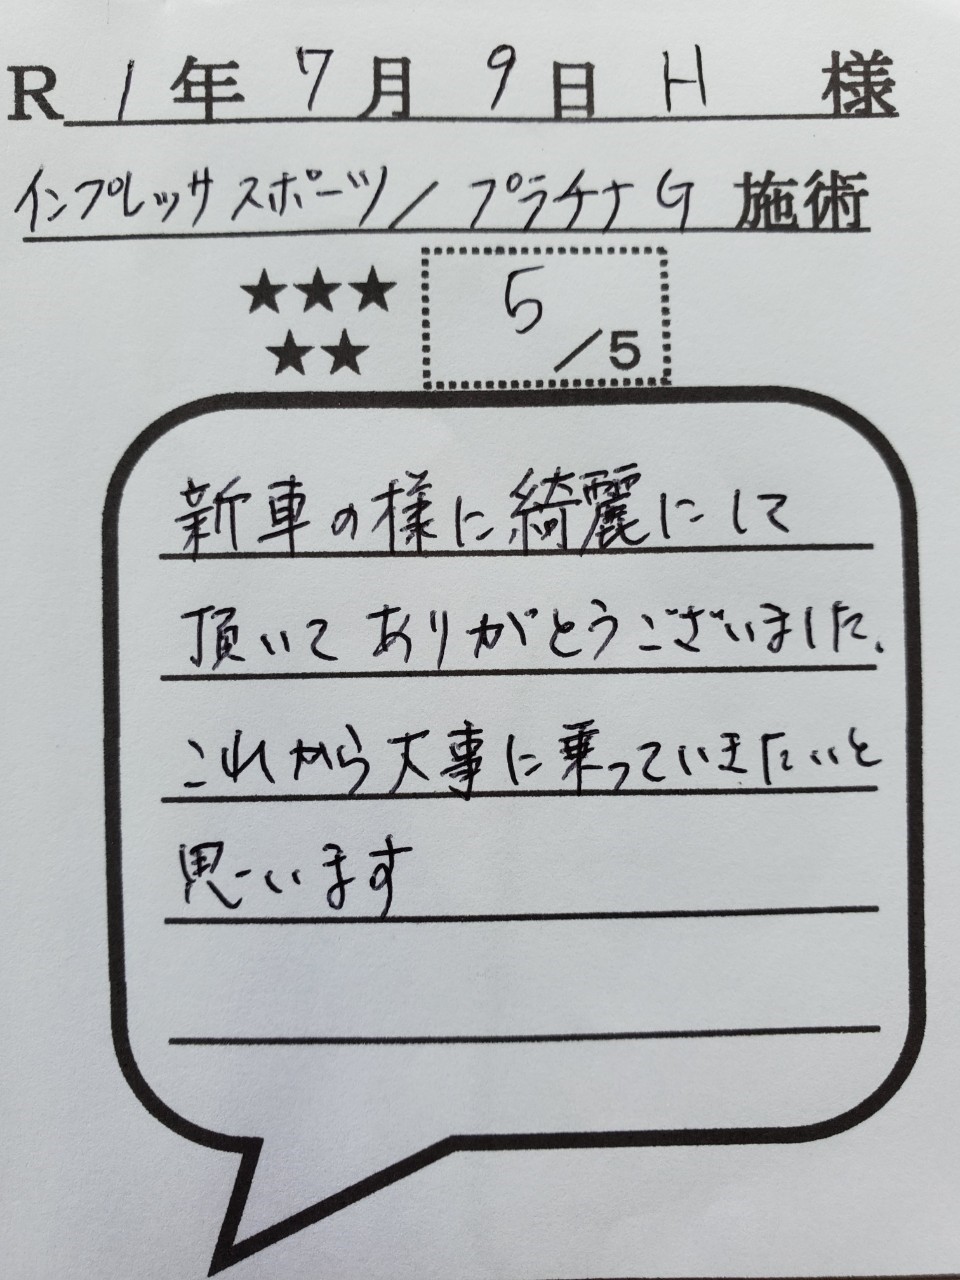 R 1年 7月 9日 H 様
インプレッサスポーツ/プラチナG 施術
★★★
★★
5/5
新車の様に綺麗にして
頂いてありがとうございました、
これから大事に乗っていきたいと
思います